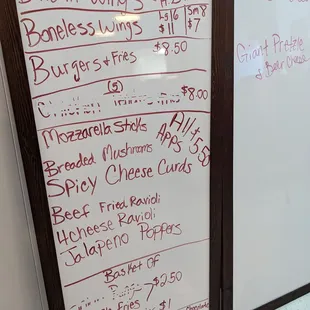 Boneless Wings Lg 16 Sm 8
$11 $7
Burgers & Fries $8.50
(5)
$8.00
Mozzarella Sticks
All
Apps
Breaded Mushrooms
Spicy Cheese Curds
Beef Fried Ravioli
4 cheese Ravioli
Jalapeno Poppers
Basket of
$2.50
Fries $1
Giant Pretzle
& Beer Cheese